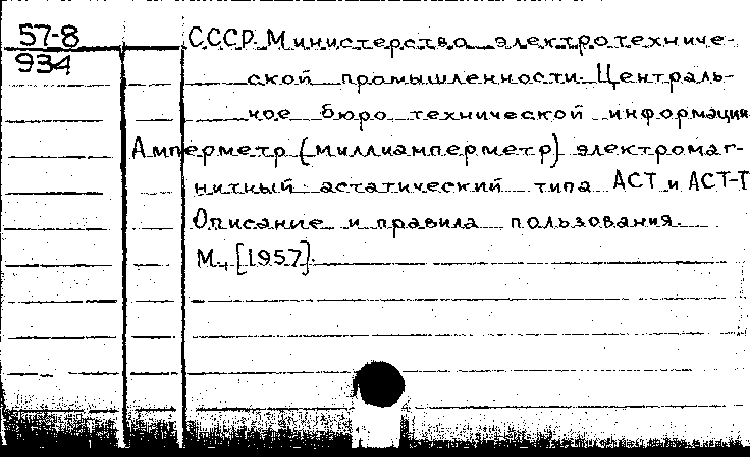 57-8
934
СССР. Министерство электротехниче-
ской промышленности. Централь-
ное бюро технической информации
Амперметр (миллиамперметр) электромаг-
нитный астатический типа АСТ и АСТ-Т
Описание и правила пользования.
М., [1957].